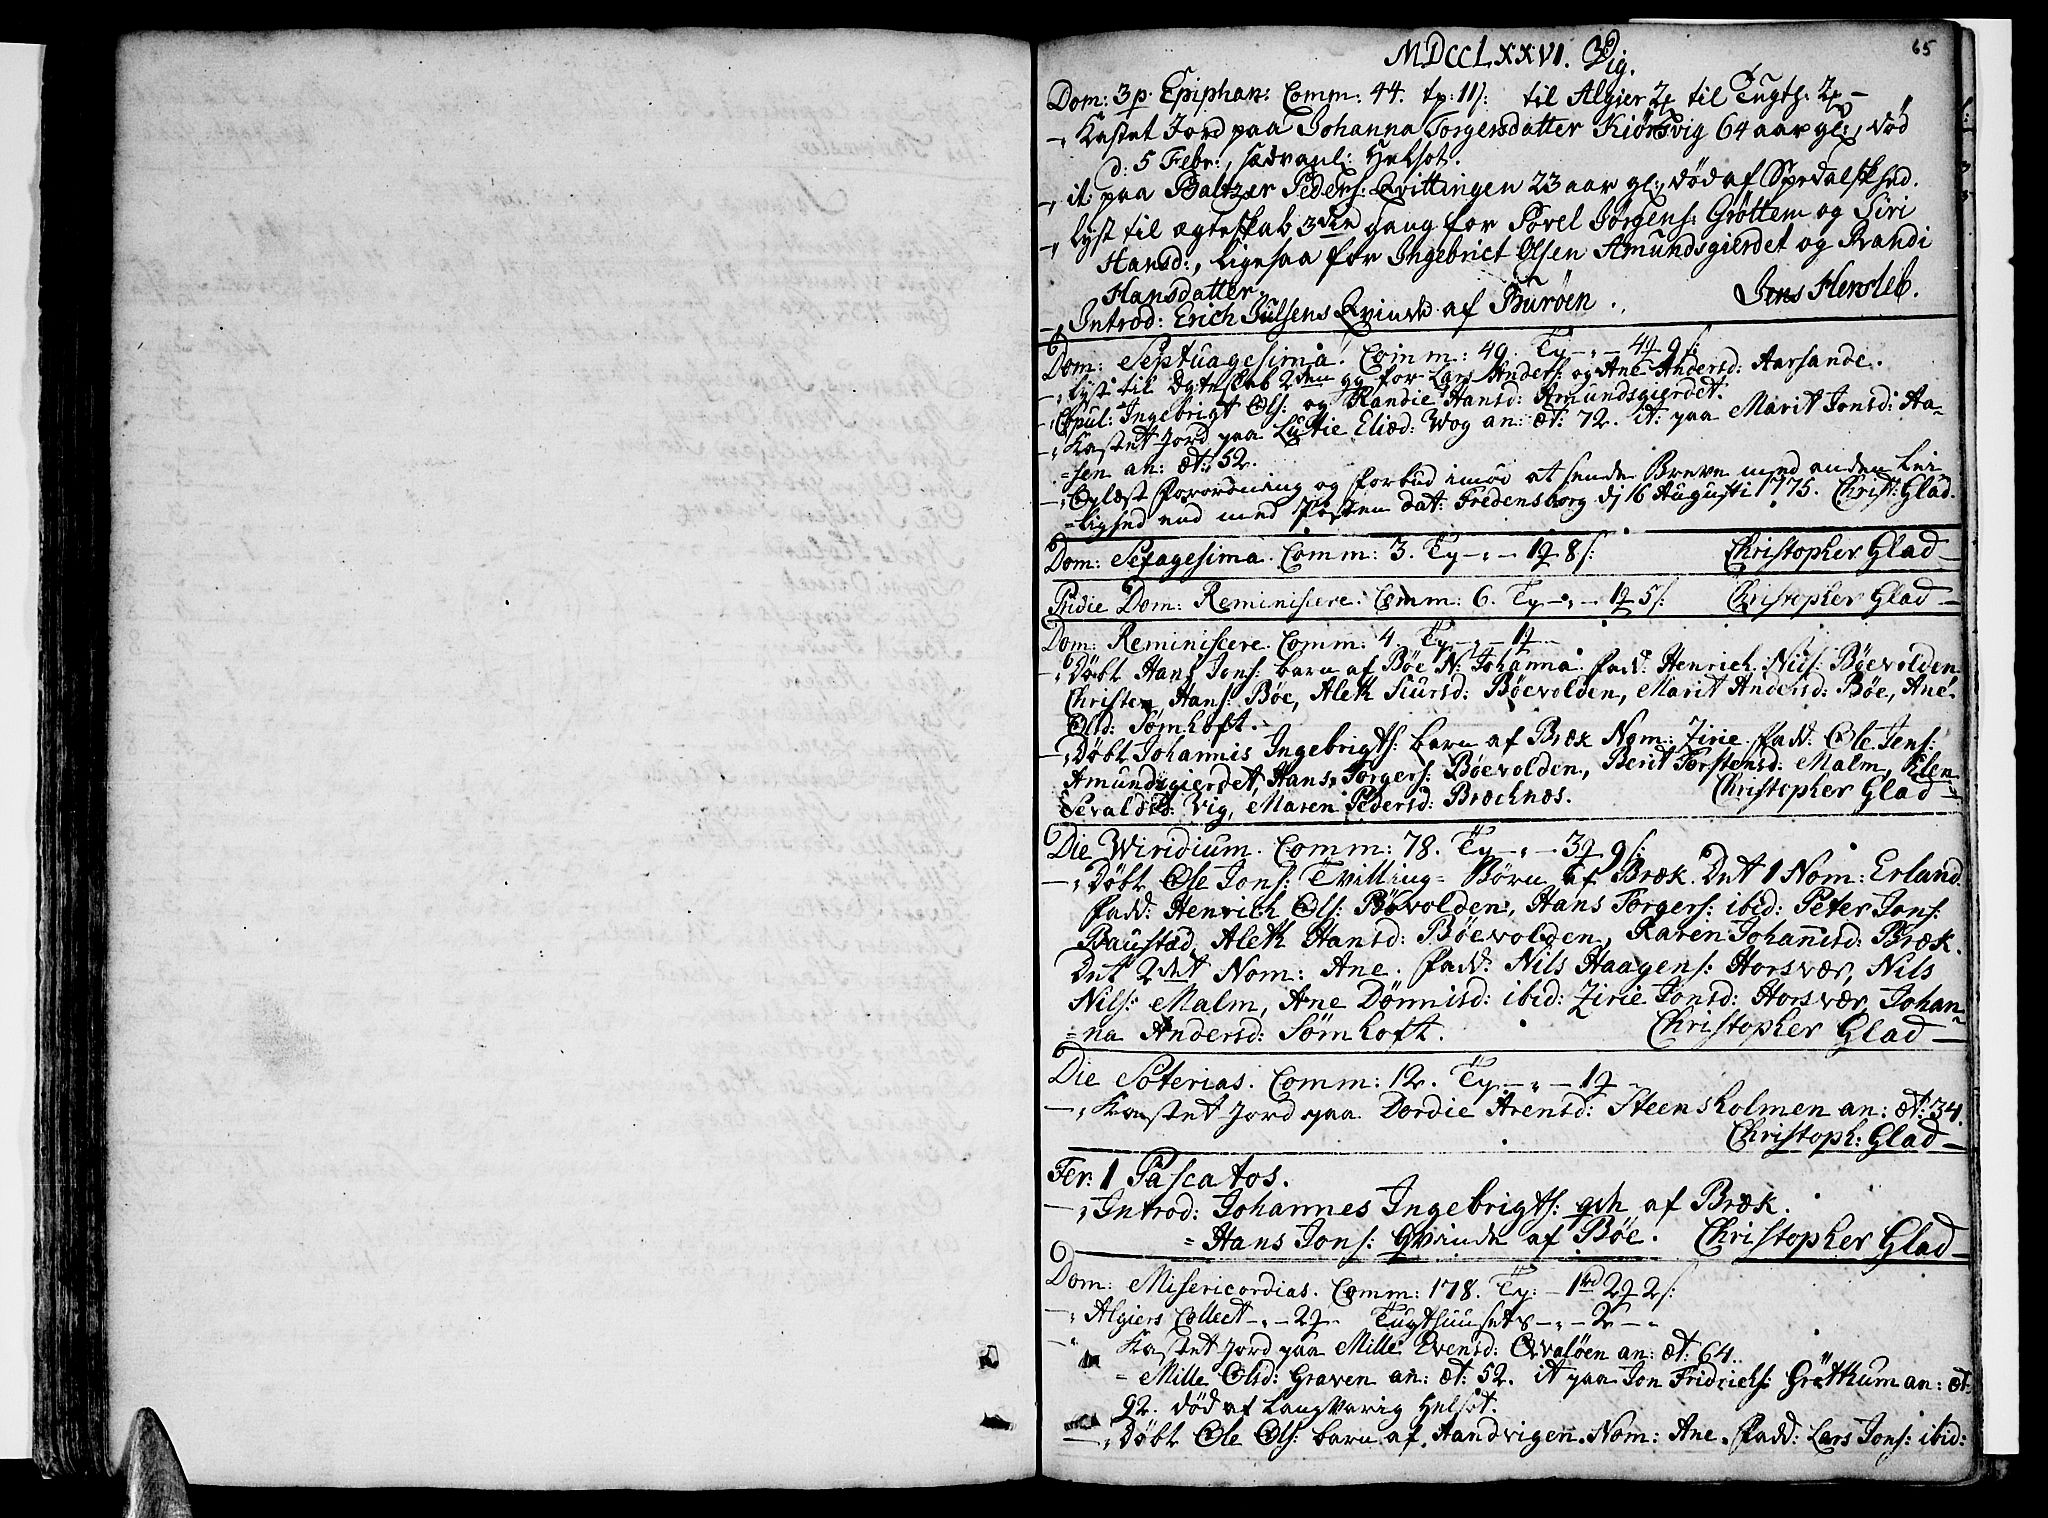 65
MDCCLXXVI.
Dom: 3 p. Epiphan: Comm: 44. tp: 11 s: til Algier 2 til Tugth: 2 –
–, Kastet Jord paa Johanna Torgersdatter Kiørsvig 64 aar gl:, død
d: 5 Febr:, sædvanl: Helsot.
–, it: paa Baltzer Peders: Qvittingen 23 aar gl:, død af Spedalskhed.
–, Lyst til ægteskab 3die gang for Povel Jørgens: Grøttem og Siri
Hansd:, ligesaa for Ingebrict Olsen Amundsgierdet og Randi
Hansdatter. Jens Hersleb.
–, Introd: Erich Julsens Qvinde af Burøen.
Dom: Septuagesima. Comm: 49. Ty –„– 4 9 s:
–, Lyst til Ægteskab 2den gg for Lars Anders: og Ane Andersd: Aarsande.
–, Copul: Ingebrigt Ols: og Randie Hansd: Amundsgierdet.
–, Kastet Jord paa Lystie Eliæd: Wog an: æt: 72. it: paa Marit Jonsd: Aa-
=sen an: æt: 52.
–, Oplæst Forordning og Forbud imod at sende Breve med anden Lei-
=lighed end med Posten dat: Fredensborg d: 16 Augusti 1775. Christ: Glad.
Dom: Sexagesima. Comm: 3. Ty –„– 1 8 s: Christopher Glad –
Pridie Dom: Reminiscere. Comm: 6. Ty –„– 1 5 s: Christopher Glad –
Dom: Reminiscere. Comm: 4. Ty –„– 1
–, Døbt Hans Jons: barn af Bøe N: Johanna. Fadd: Henrich Nils: Bøevolden
Christen Hans: Bøe, Aleth Siursd: Bøevolden, Marit Andersd: Bøe, Ane
Olsd: Sømhoft.
–, Døbt Johannis Ingebrigts: barn af Bræk Nom: Zirie. Fadd: Ole Jens:
Amundsgierdet, Hans Torgers: Bøevolden, Berit Torstensd: Malm, Elen
Sevaldsd: Vig, Maren Pedersd: Bræchnæs. Christopher Glad –
Die Wiridium. Comm: 78. Ty –„– 3 9 s:
–, Døbt Ole Jons: Tvilling= Børn af Bræk. Det 1 Nom: Erland.
Fadd: Henrich Ols: Bøvolden, Hans Torgers: ibid: Peter Jons:
Baustad, Aleth Hansd: Bøevolden, Karen Johannsd: Bræk.
Det 2det Nom: Ane. Fadd: Nils Haagens: Horsvær, Nils
Nils: Malm, Ane Dønnisd: ibid: Zirie Jonsd: Horsvær, Johan-
=na Andersd: Sømhoft. Christopher Glad –
Die Soterias. Comm: 12. Ty –„– 1
–, Kastet Jord paa Dordie Arensd: Steensholmen an: æt: 34.
Christoph: Glad –
Fer: 1 Pascatos.
–, Introd: Johannes Ingebrigts: qvh af Bræk.
= Hans Jons: Qvinde af Bøe. Christopher Glad –
Dom: Misericordias. Comm: 178. Ty: – 1rd 2 2 s:
–„ Algiers Collect –„– 2 Tugthuusets –„– 2 –„
–„ Kastet Jord paa Mille Evensd: Qvaløen an: æt: 64.
= Mille Olsd: Graven an: æt: 52. it paa Jon Fridrichs: Grøthum an: æt:
92. død af Langvarig Helsot.
–, Døbt Ole Ols: barn af Aandvigen. Nom: Ane. Fadd: Lars Jons: ibid: